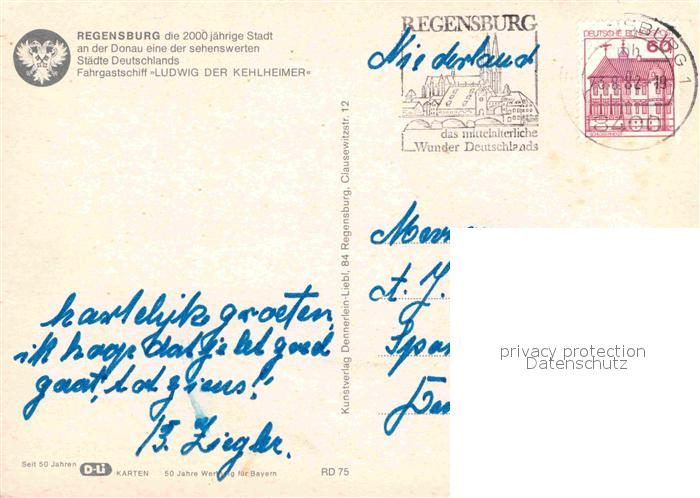 REGENSBURG die 2000 jährige Stadt
an der Donau eine der sehenswerten
Städte Deutschlands
Fahrgastschiff »LUDWIG DER KEHLHEIMER«
REGENSBURG
das mittelalterliche
Wunder Deutschlands
DEUTSCHE BUNDESPOST
60
SBURG 1
8400
Niederland
Kunstverlag Dennerlein-Liebl, 84 Regensburg, Clausewitzstr. 12
hartelijk groeten,
ik hoop dat je let goed
gaat, tot ziens!
B. Ziegler.
privacy protection
Datenschutz
Seit 50 Jahren D-Li KARTEN 50 Jahre Werbung für Bayern
RD 75